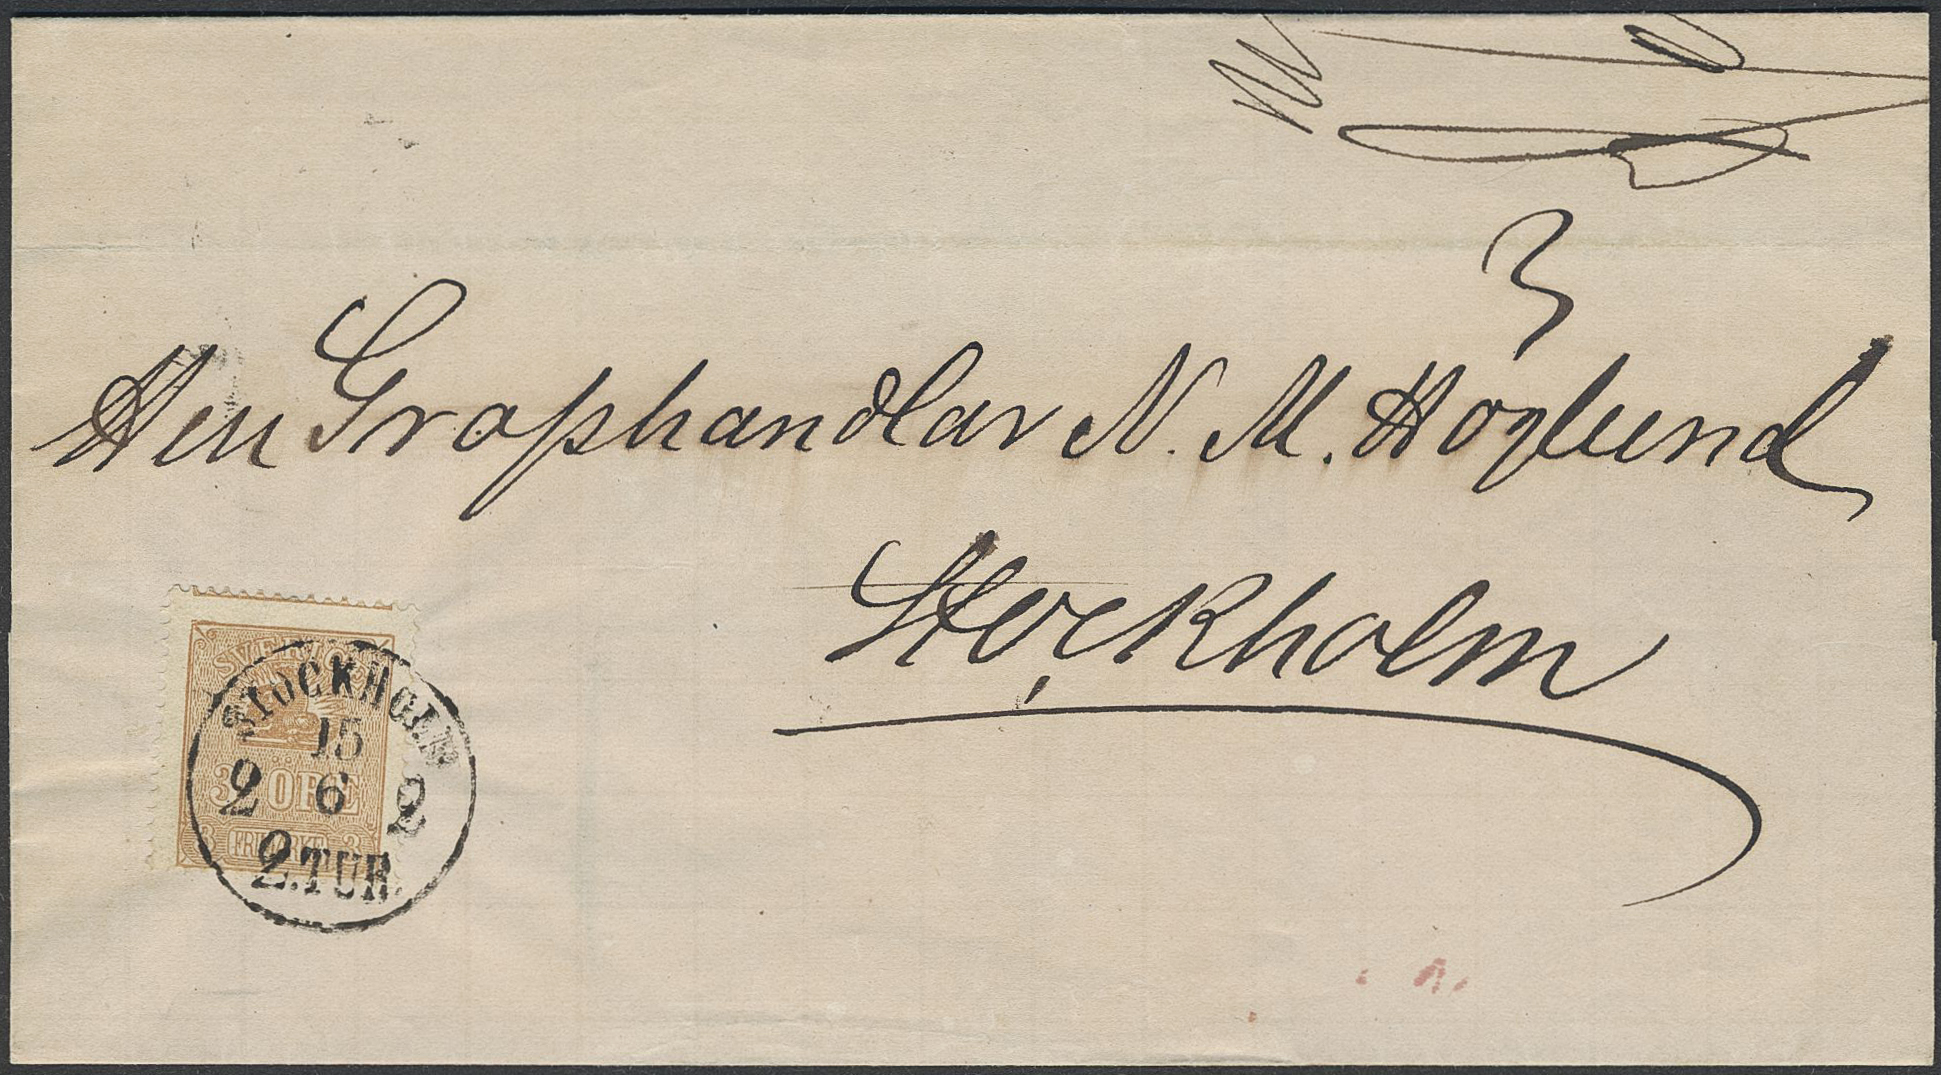 Herr Grosshandlar N. M. Höglund
Stockholm
SVERIGE
3 ÖRE
3 FRIMÄRKE 3
STOCKHOLM
15
2 6 2
2.TUR.